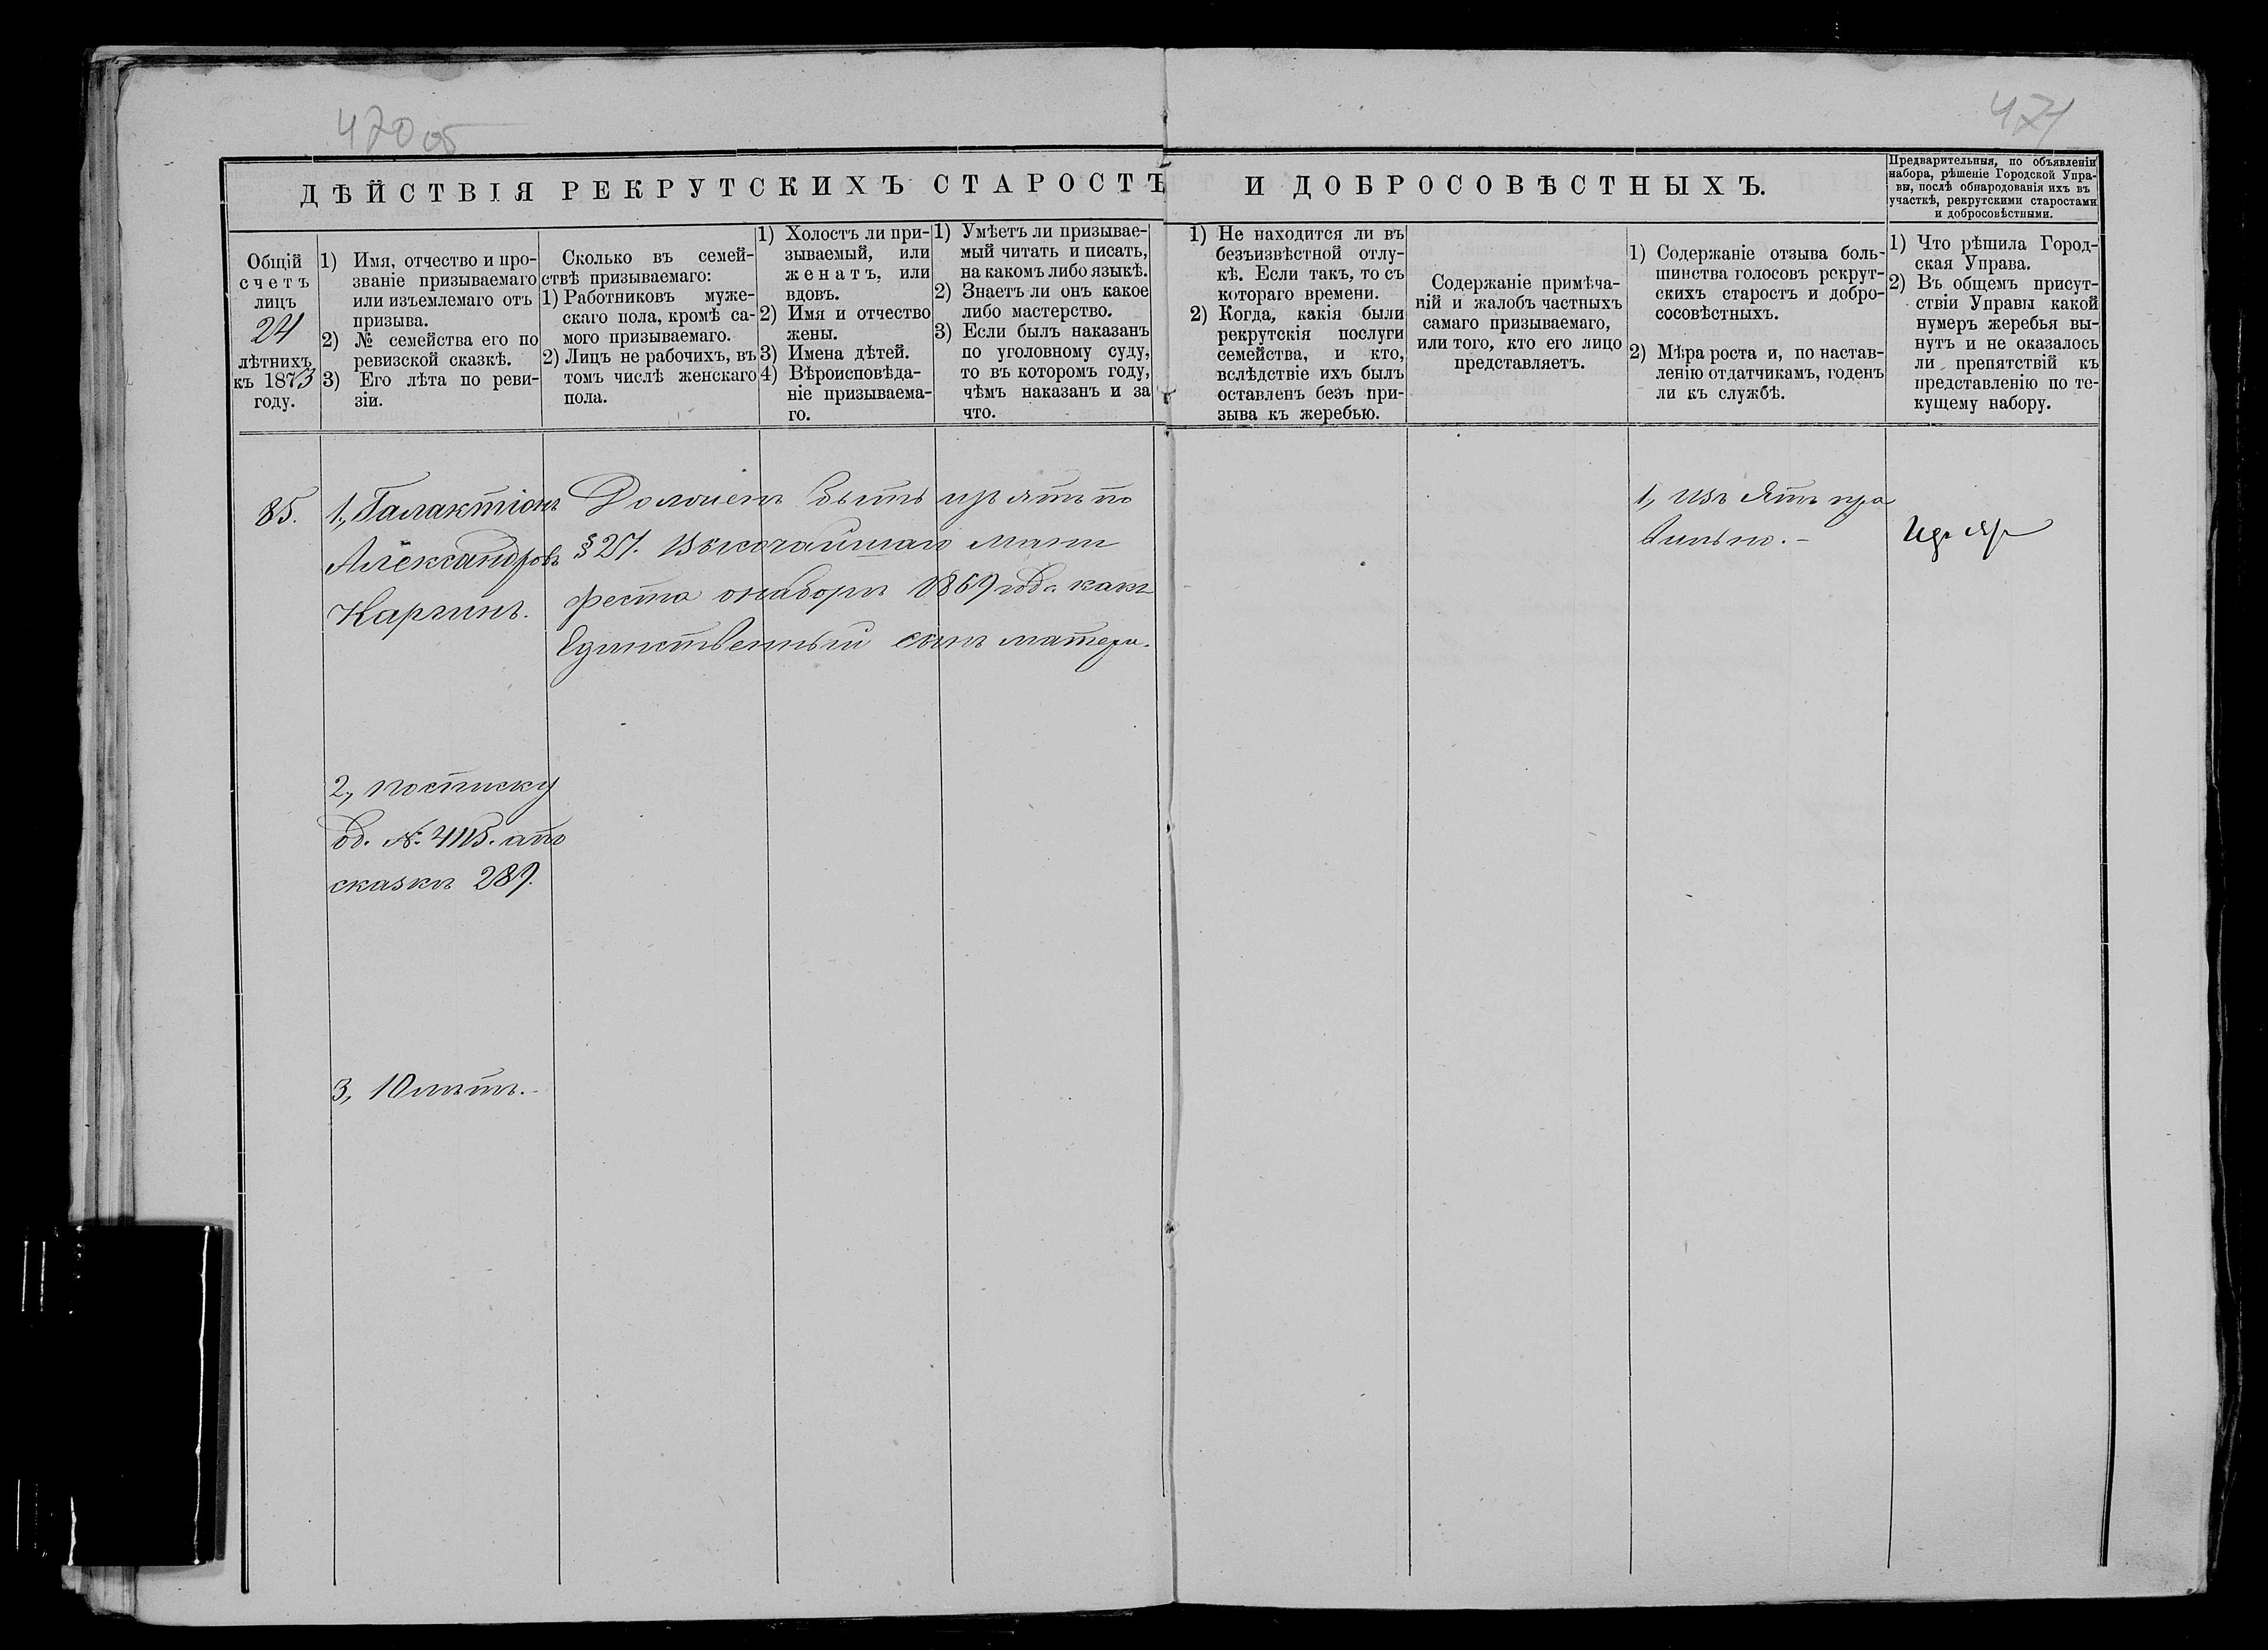 470 об
471
ДѢЙСТВІЯ РЕКРУТСКИХЪ СТАРОСТЪ И ДОБРОСОВѢСТНЫХЪ.
Предварительныя, по объявленіи
набора, рѣшеніе Городской Упра-
вы, послѣ обнародованія ихъ въ
участкѣ, рекрутскими старостами
и добросовѣстными.
Общій
счетъ
лицъ
24
лѣтнихъ
къ 1873
году.
1) Имя, отчество и про-
званіе призываемаго
или изъемлемаго отъ
призыва.
2) № семейства его по
ревизской сказкѣ.
3) Его лѣта по реви-
зіи.
Сколько въ семей-
ствѣ призываемаго:
1) Работниковъ муже-
скаго пола, кромѣ са-
мого призываемаго.
2) Лицъ не рабочихъ, въ
томъ числѣ женскаго
пола.
1) Холостъ ли при-
зываемый, или
женатъ, или
вдовъ.
2) Имя и отчество
жены.
3) Имена дѣтей.
4) Вѣроисповѣда-
ніе призываема-
го.
1) Умѣетъ ли призывае-
мый читать и писать,
на какомъ либо языкѣ.
2) Знаетъ ли онъ какое
либо мастерство.
3) Если былъ наказанъ
по уголовному суду,
то въ которомъ году,
чѣмъ наказанъ и за
что.
1) Не находится ли въ
безъизвѣстной отлу-
кѣ. Если такъ, то съ
котораго времени.
2) Когда, какія были
рекрутскія послуги
семейства, и кто,
вслѣдствіе ихъ былъ
оставленъ безъ при-
зыва къ жеребью.
Содержаніе примѣча-
ній и жалобъ частныхъ
самаго призываемаго,
или того, кто его лицо
представляетъ.
1) Содержаніе отзыва боль-
шинства голосовъ рекрут-
скихъ старостъ и добро-
сосовѣстныхъ.
2) Мѣра роста и, по настав-
ленію отдатчикамъ, годенъ
ли къ службѣ.
1) Что рѣшила Город-
ская Управа.
2) Въ общемъ присут-
ствіи Управы какой
нумеръ жеребья вы-
нутъ и не оказалось
ли препятствій къ
представленію по те-
кущему набору.
85.
1., Галактіонъ
Александровъ
Каргинъ.
Долженъ быть изъятъ по
§ 27. Высочайшаго Мани
феста о наборѣ 1869 года какъ
Единственный сынъ матери.
1, Изъ Ятъ пра
вильно. –
2., по списку
об. №. 4115. а по
сказкѣ 289.
3, 10 лѣтъ. –